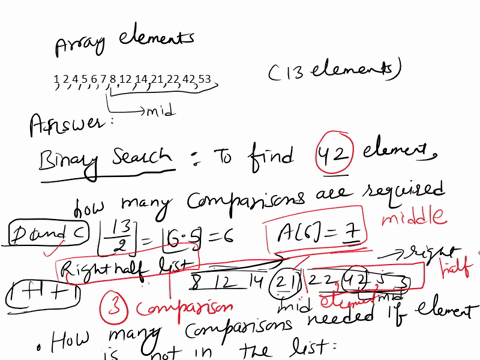 Array elements
1,2,4,5,6,7,8,12,14,21,22,42,53 (13 elements)
→mid
Answer:
Binary Search : To find 42 element,
how many comparisons are required
D and C ⌊13/2⌋ = ⌊6.5⌋ = 6 A[6] = 7 middle
Right half list 8 12 14 21 22, 42, 53 → right half
mid element mid
3 comparison
. How many comparisons needed if element
is not in the list: